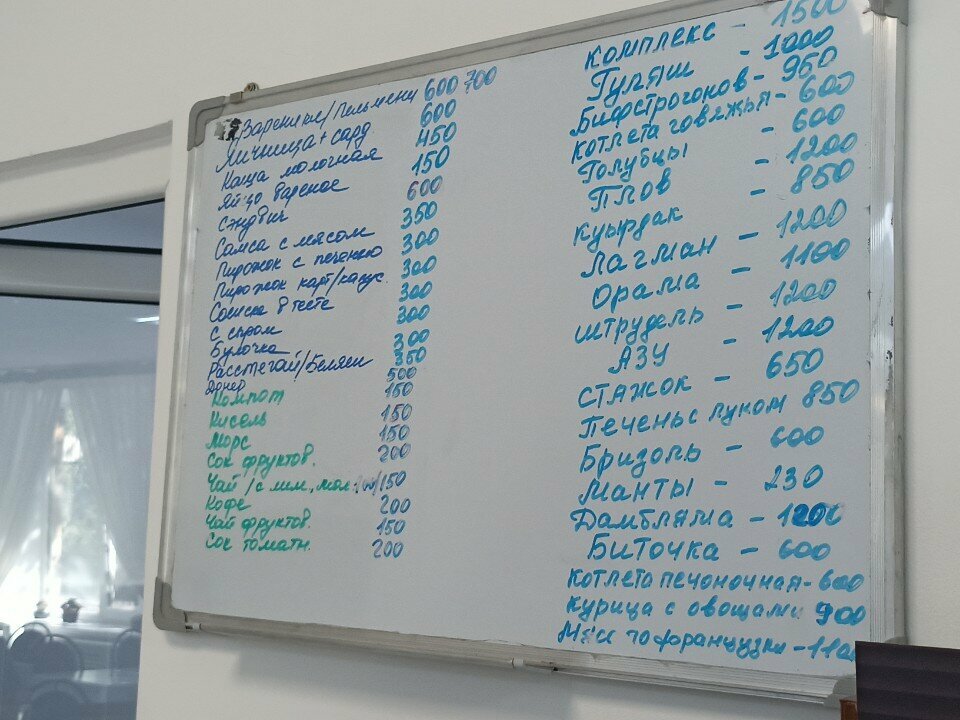 Вареники/Пельмени 600 700
Яичница + сард 600
Каша молочная 450
Яйцо вареное 150
Сэндвич 600
Самса с мясом 350
Пирожок с печенью 300
Пирожок карт/капус. 300
Сосиска в тесте 300
С сыром 300
Булочка 300
Расстегай/Беляш 350
Донер 500
Компот 150
Кисель 150
Морс 150
Сок фруктов. 200
Чай /с лим., мол. 150
Кофе 200
Чай фруктов. 150
Сок томатн. 200
Комплекс - 1500
Гуляш - 1000
Бифстрогонов - 950
Котлета говяжья - 600
Голубцы - 600
Плов - 1200
Куырдак - 850
Лагман - 1200
Орама - 1100
Штрудель - 1200
АЗУ - 1200
Стажок - 650
Печень с луком 850
Бризоль - 600
Манты - 230
Дамбляма - 1200
Биточка - 600
Котлета печоночная - 600
Курица с овощами 900
Мясо по французки - 1100